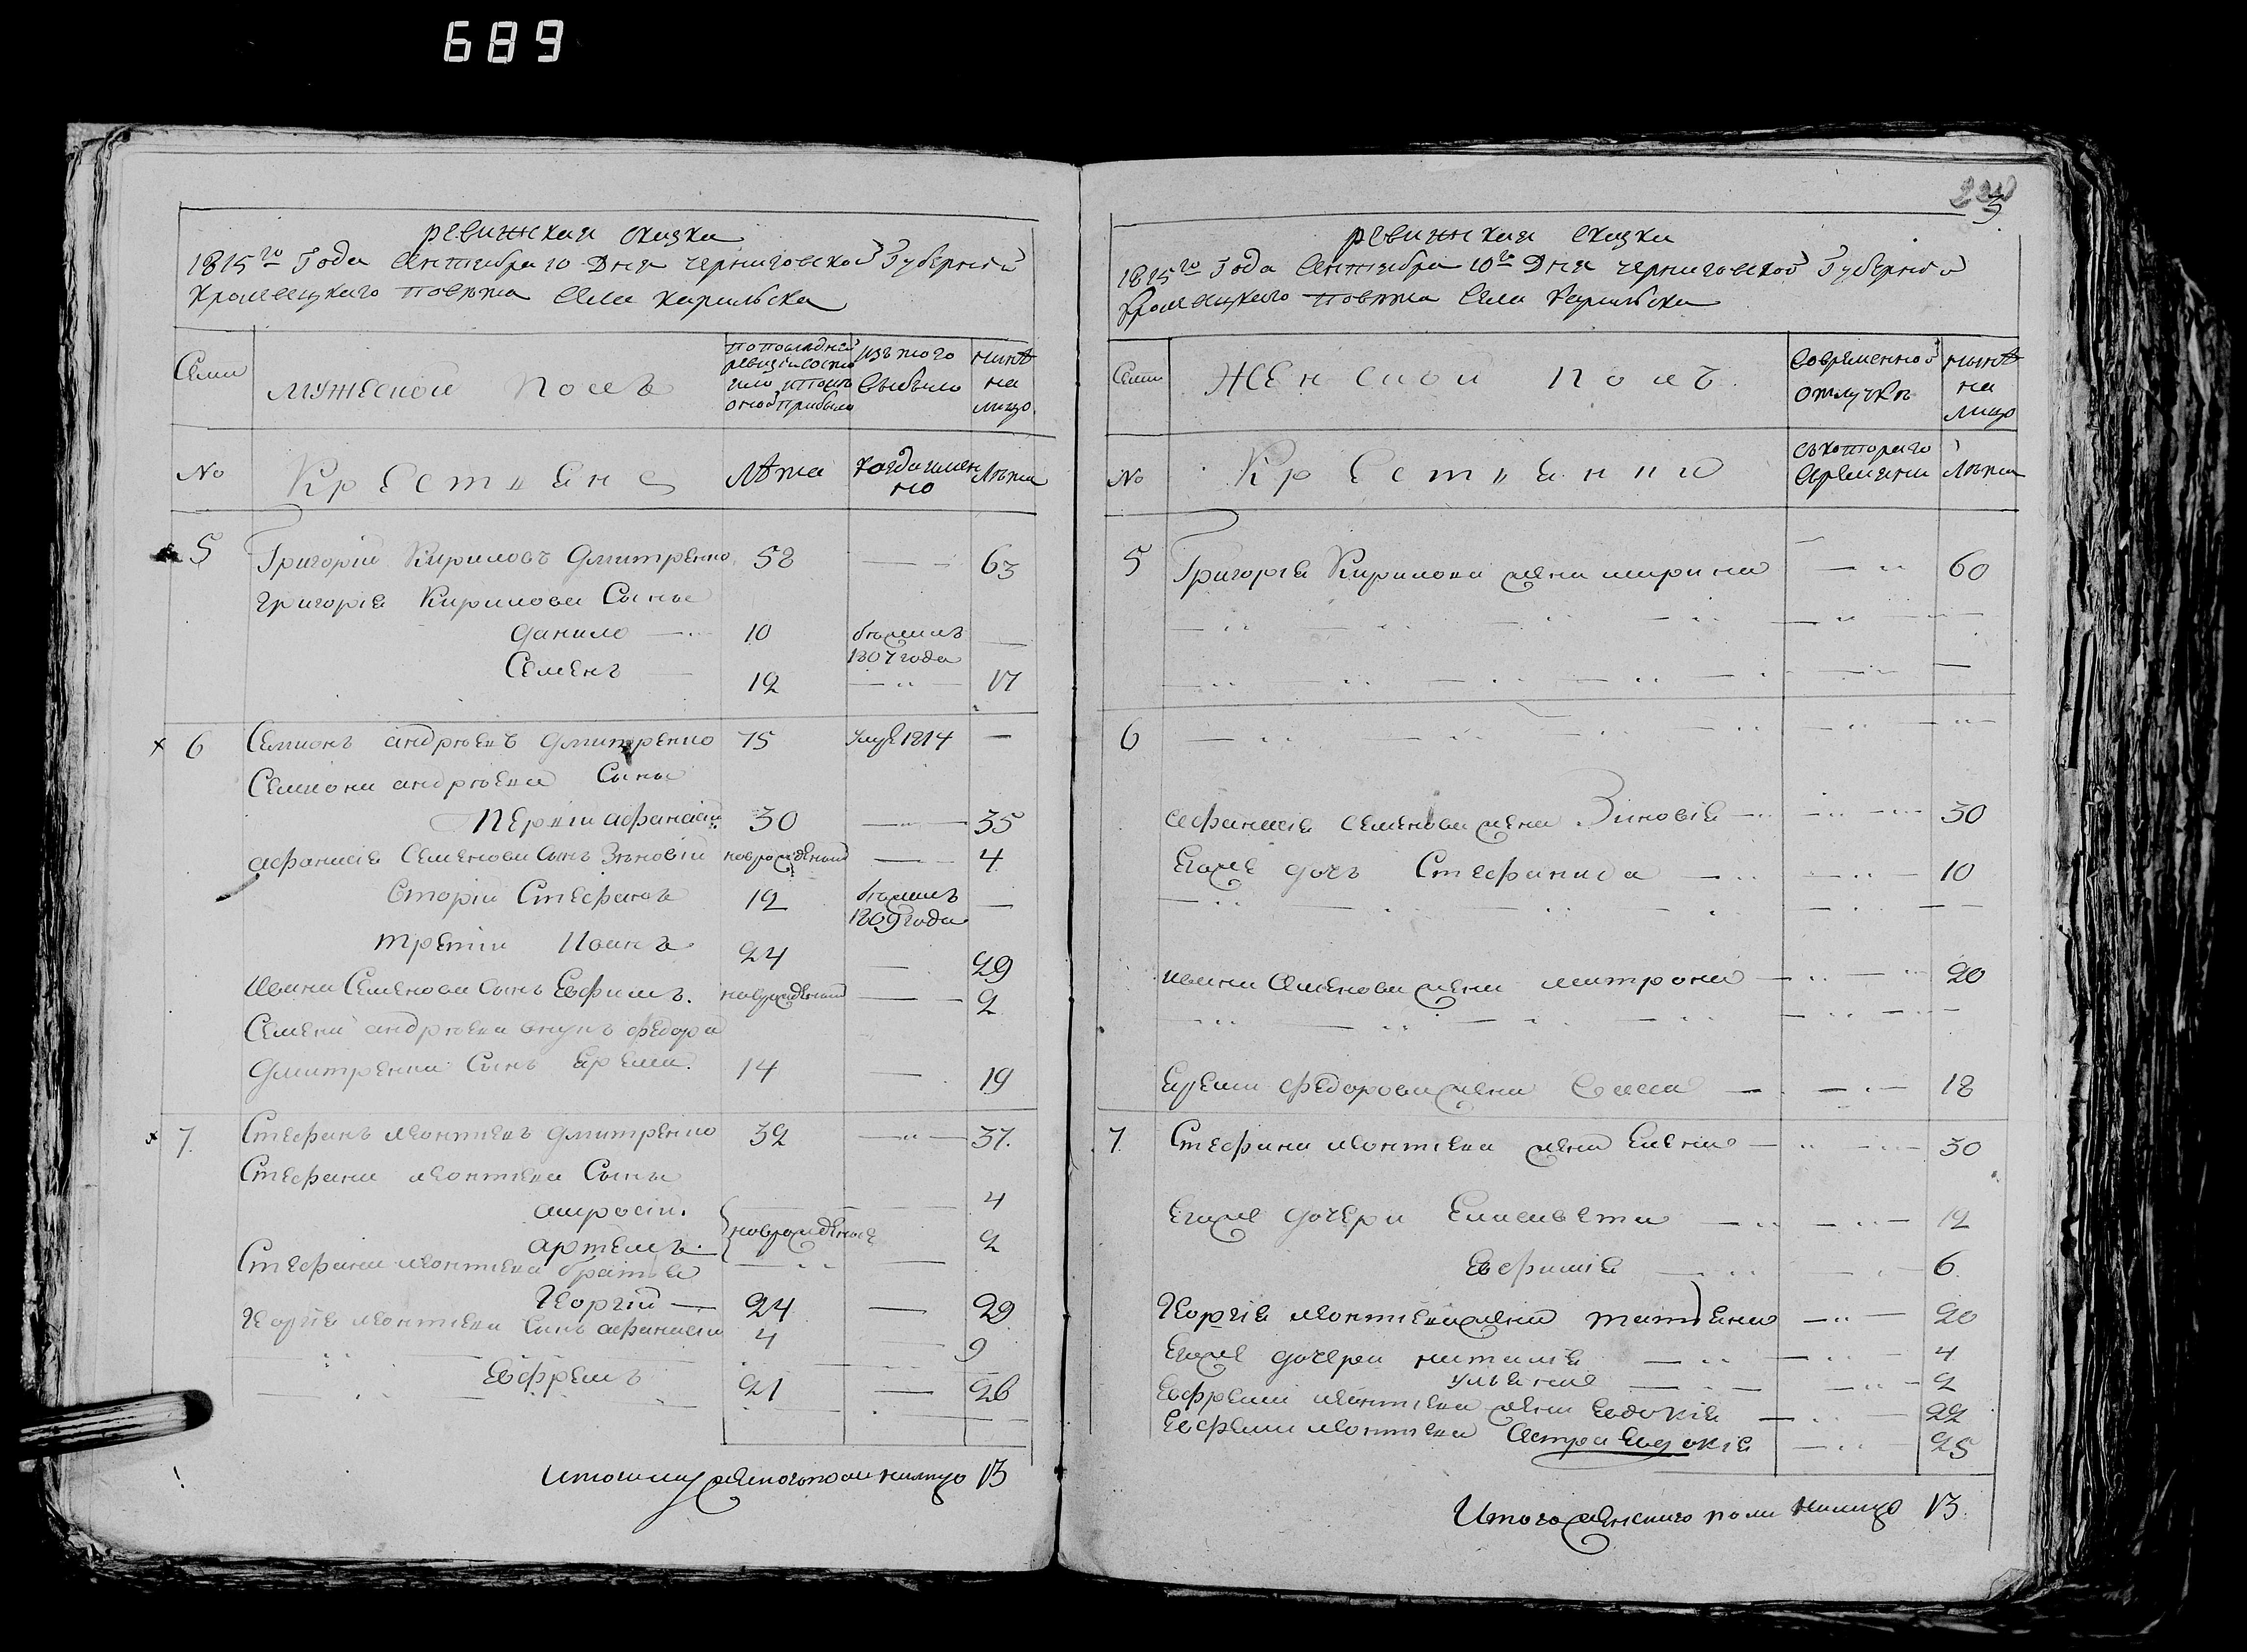 689
ревижская сказка
1815го Года Сентября 10 Дня черниговской Губернии
Кролевецкого повѣта Села Карильска
Семи
мужеской полъ
по последней ревизіи состояло и после оной прибыло
изъ того выбыло
нинѣ на лицо
No
Крестьяне
Лѣта
когда именно
Лѣта
5 Григорій Кириловъ Дмитренко 58 63
Григорія Кирилова Сынье
Данило 10 бѣжилъ 1807 года
Семенъ 12 17
6 Семионъ андрѣевъ Дмитренко 75 1814
Семиона андрѣева Сыны
Первій афанасій 30 35
афанасія Семенова Сынъ Зѣновій новрожденный 4
Вторій Стефанъ 12 бѣжилъ 1809 года
третій Иванъ 24 29
Ивана Семенова Сынъ Евфимъ. новрожденный 2
Семена андрѣева внукъ Федора
Дмитренка Сынъ Ерема. 14 19
7. Стефанъ леонтіевъ Дмитренко 32 37.
Стефана леонтіева Сынье
амросій. 4
артемъ. новрожденные 2
Стефана леонтіева братья
Георгій 24 29
Георгія леонтіева Сынъ афанасій 4 9
Евфремъ 21 26
Итого мужескогополи налицо 13
3
ревижская сказка
1815го Года Сентября 10го Дня черниговской Губернии
Кролевецкого повѣта Села Карильска
Семи
Женской полъ.
Вовременной отлучкѣ
нынѣ на лицо
No
Крестьянки
съкоторого времени
Лѣта
5 Григорія Кирилова жена марина 60
6
афанасія семенова жена Зиновія 30
Егоже дочь Стефанида 10
ивана Семенова жена матрона 20
Еремы Федорова жена Васса 18
7 Стефана леонтіева жена Елена 30
Егоже дочери Елисавета 12
Евфимія 6.
Георгія леонтіева жена татіяна 20
Егоже дочери наталія 4
уліяна 2
Евфрема леонтіева жена Евдокія 22
Евфрема леонтіева Сестра Евдокія 25
Итого женского поли налицо 13.